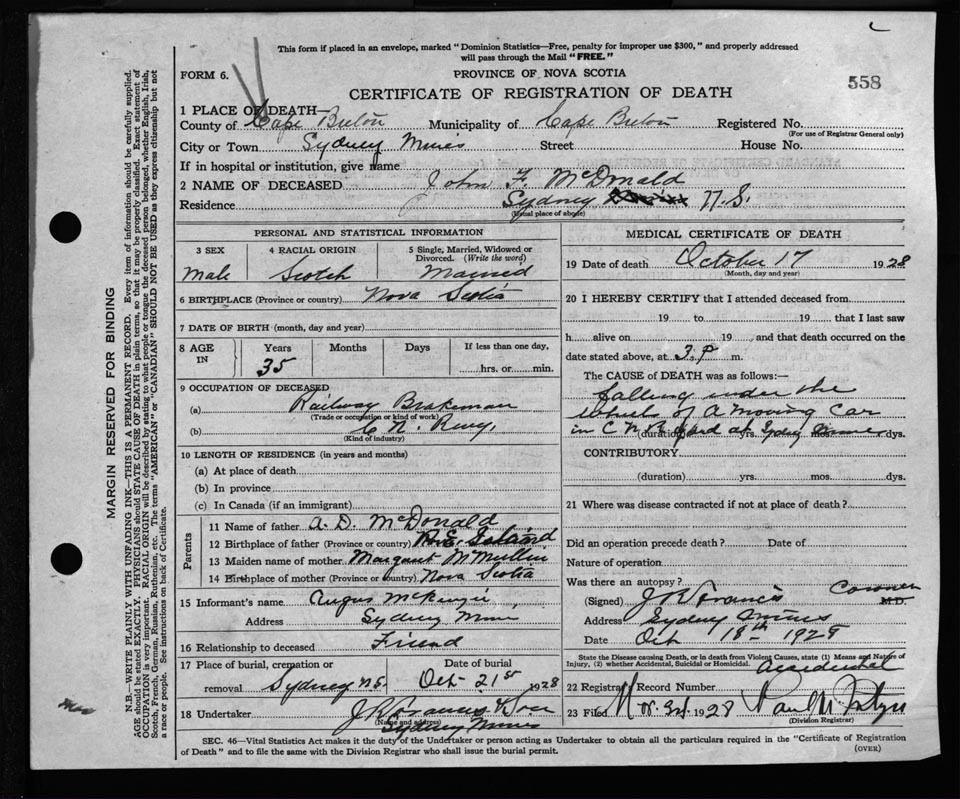 This form if placed in an envelope, marked " Dominion Statistics—Free, penalty for improper use $300, " and properly addressed
will pass through the Mail "FREE."
FORM 6.
PROVINCE OF NOVA SCOTIA
558
CERTIFICATE OF REGISTRATION OF DEATH
1 PLACE OF DEATH—
County of Cape Breton Municipality of Cape Breton Registered No.
(For use of Registrar General only)
City or Town Sydney Mines Street House No.
If in hospital or institution, give name
2 NAME OF DECEASED John F. McDonald
Residence Sydney N.S.
(Usual place of abode)
PERSONAL AND STATISTICAL INFORMATION
3 SEX 4 RACIAL ORIGIN 5 Single, Married, Widowed or
Divorced. (Write the word)
Male Scotch Married
6 BIRTHPLACE (Province or country) Nova Scotia
7 DATE OF BIRTH (month, day and year)
8 AGE IN Years Months Days If less than one day,
35 hrs. or min.
9 OCCUPATION OF DECEASED
(a) Railway Brakeman
(Trade or occupation or kind of work)
(b) C. N. Rwy.
(Kind of industry)
10 LENGTH OF RESIDENCE (in years and months)
(a) At place of death
(b) In province
(c) In Canada (if an immigrant)
Parents
11 Name of father A. D. McDonald
12 Birthplace of father (Province or country) P.E. Island
13 Maiden name of mother Margaret McMullin
14 Birthplace of mother (Province or country) Nova Scotia
15 Informant's name Angus McKenzie
Address Sydney Mines
16 Relationship to deceased Friend
17 Place of burial, cremation or Date of burial
removal Sydney N.S. Oct 21st 1928
18 Undertaker
(Name and address)
Sydney Mines
MEDICAL CERTIFICATE OF DEATH
19 Date of death October 17 1928
(Month, day and year)
20 I HEREBY CERTIFY that I attended deceased from
19 to 19 that I last saw
h alive on 19 and that death occurred on the
date stated above, at 3. P. m.
The CAUSE of DEATH was as follows:—
falling under the
wheels of a moving car
in C N R yard at Sydney Mines
(duration) yrs. mos. dys.
CONTRIBUTORY
(duration) yrs. mos. dys.
21 Where was disease contracted if not at place of death?
Did an operation precede death? Date of
Nature of operation
Was there an autopsy?
(Signed) Coroner M.D.
Address Sydney Mines
Date Oct 18th 1928
State the Disease causing Death, or in death from Violent Causes, state (1) Means and Nature of
Injury, (2) whether Accidental, Suicidal or Homicidal. Accidental
22 Registrar Record Number
23 Filed Nov. 3rd 1928
(Division Registrar)
SEC. 46—Vital Statistics Act makes it the duty of the Undertaker or person acting as Undertaker to obtain all the particulars required in the "Certificate of Registration
of Death" and to file the same with the Division Registrar who shall issue the burial permit.
(OVER)
MARGIN RESERVED FOR BINDING
N.B.—WRITE PLAINLY WITH UNFADING INK—THIS IS A PERMANENT RECORD. Every item of information should be carefully supplied.
AGE should be stated EXACTLY. PHYSICIANS should STATE CAUSE OF DEATH in plain terms, so that it may be properly classified. Exact statement of
OCCUPATION is very important. RACIAL ORIGIN will be described by stating to what people or tongue the deceased person belonged, whether English, Irish,
Scotch, French, German, Russian, Ruthenian, etc. The terms "AMERICAN" or "CANADIAN" SHOULD NOT BE USED as they express citizenship but not
a race or people. See instructions on back of Certificate.